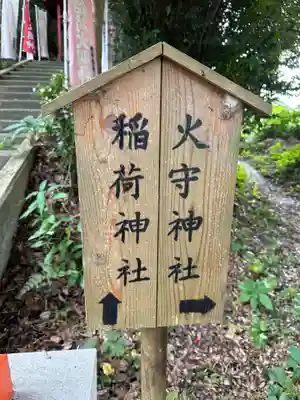 火守神社
→
稲荷神社
↑